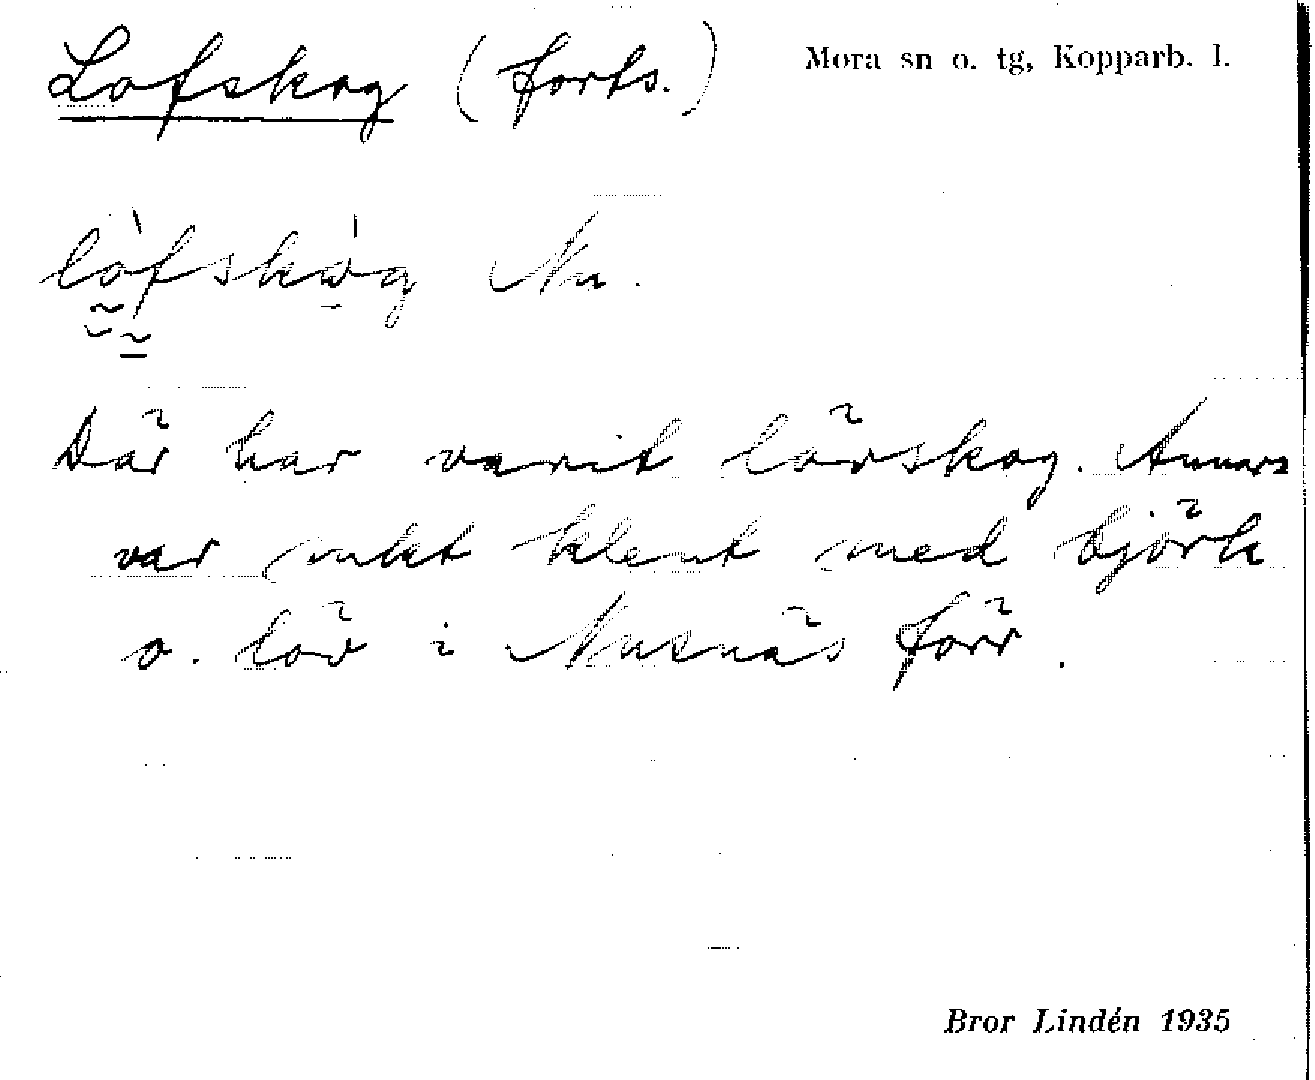 Lofskog (forts.) Mora sn o. tg, Kopparb. l.
lòfskòg Nu.
Där har varit lövskog. Annars
var mkt klent med björk
o. löv i Nusnäs förr.
Bror Lindén 1935